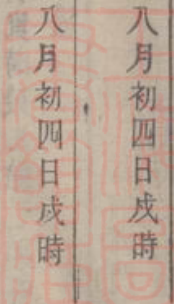 八月初四日戌時
八月初四日戌時